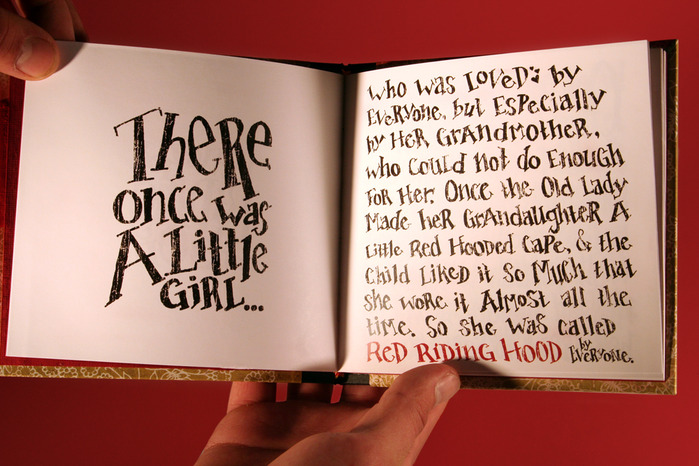 There
once was
A Little
GiRL...
who was LOVED by
EVERYONE, but ESpEcially
by HER GRANDMOTHER,
who could not do Enough
FOR HER. Once the Old Lady
MADE HER GRANDDAUGHTER A
Little Red Hooded Cape, & the
Child Liked it So Much that
she wore it Almost all the
time. So she was called
RED RIDING HOOD by EVERYONE.